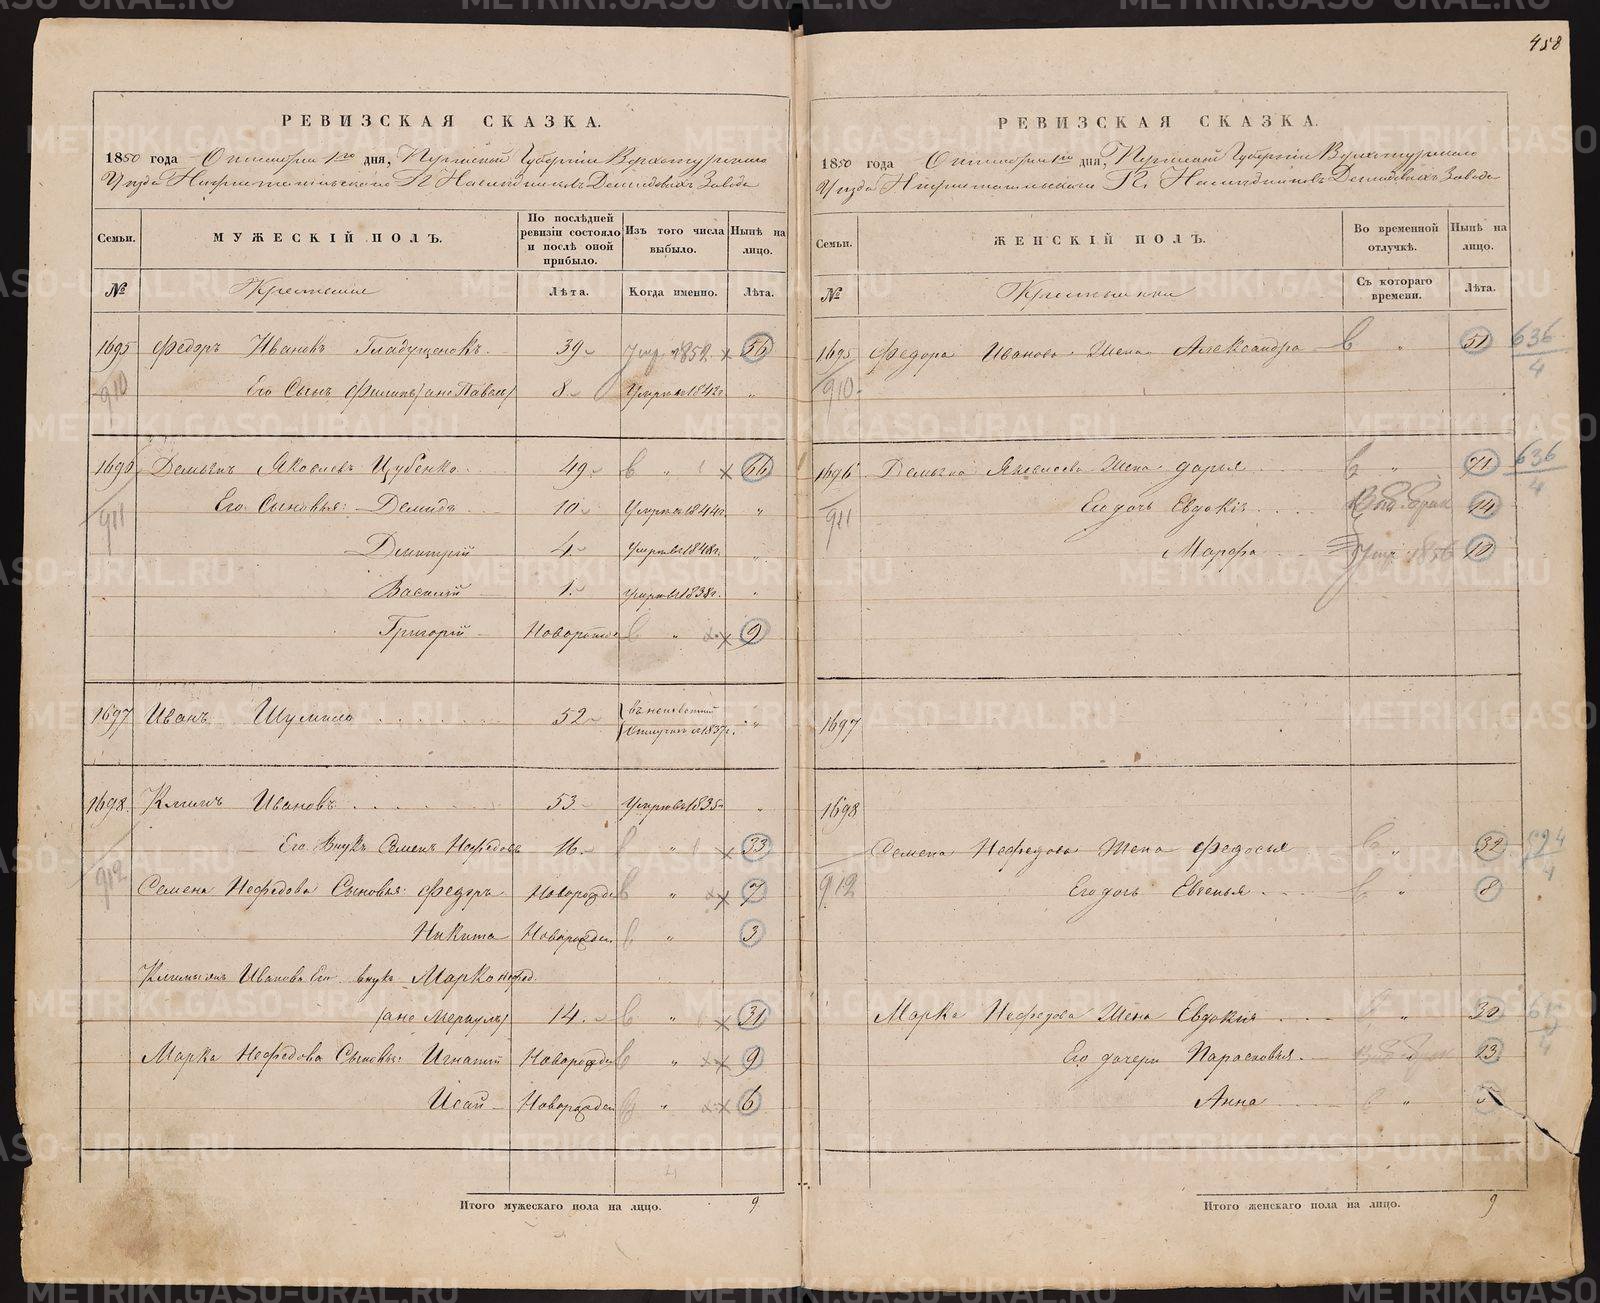 458
РЕВИЗСКАЯ СКАЗКА.
1850 года Октября 1го дня, Пермской Губернiи Верхотурскаго
Уѣзда Нижнетагильскаго Гг Наслѣдниковъ Демидовыхъ Завода
Семьи.
МУЖЕСКIЙ ПОЛЪ.
По послѣдней ревизiи состояло и послѣ оной прибыло.
Изъ того числа выбыло.
Нынѣ на лицо.
№
Крестьяне
Лѣта.
Когда именно.
Лѣта.
1695 Федоръ Ивановъ Гладущенокъ 39 1852 56
910 Его Сынъ Филипъ /ане Павелъ/ 8 Умре въ 1842г. "
1696 Демьянъ Яковлевъ Цубенко 49 " 66
911 Его Сыновья: Демидъ 10 Умре въ 1844г. "
Дмитрiй 4 Умре въ 1848г. "
Василiй 1 Умре въ 1838г. "
Григорiй Новорожде " 9
1697 Иванъ Шумило 52 въ неизвѣстной "
отлучкѣ съ 1837г.
1698 Климъ Ивановъ 53 Умре въ 1835г. "
Его Внукъ Семенъ Нефедовъ 16 " 33
912 Семена Нефедова Сыновья: Федоръ Новорожде " 7
Никита Новорожден " 3
Ивановъ Его внукъ Марко Нефед.
14 " 31
Марка Нефедова Сыновья: Игнатiй Новорожде " 9
Исай Новорожден " 6
Итого мужескаго пола на лицо. 9
РЕВИЗСКАЯ СКАЗКА.
1850 года Октября 1го дня, Пермской Губернiи Верхотурскаго
Уѣзда Нижнетагильскаго Гг Наслѣдниковъ Демидовыхъ Завода
Семьи.
ЖЕНСКIЙ ПОЛЪ.
Во временной отлучкѣ.
Нынѣ на лицо.
№
Крестьянки
Съ котораго времени.
Лѣта.
1695 Федора Иванова Жена Александра " 51 636/4
910
1696 Демьяна Яковлева Жена Дарья " 71 636/4
911 Его дочь Евдокiя 14
Марфа 1856 10
1697
1698
Семена Нефедова Жена Федосья " 32
912 Его дочь Евгенья " 8
Марка Нефедова Жена Евдокiя " 30
Его дочери Парасковья 13
Анна " 5
Итого женскаго пола на лицо. 9
METRIKI.GASO-URAL.RU